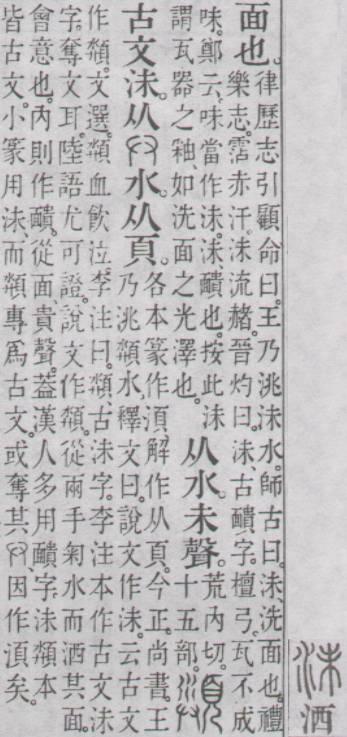 沬洒
面也。
律歷志引顧命曰。王乃洮沬水。師古曰。沬、洗面也。禮
樂志。霑赤汗。沬流赭。晉灼曰。沬、古靧字。檀弓。瓦不成
味。鄭云。味當作沬。沬、靧也。按此沬
謂瓦器之釉、如洗面之光澤也。
从水。未聲。
荒內切。
十五部。
古文沬。从𠬞水。从頁。
各本篆作湏。解作从頁。今正。尚書。王
乃洮頮水。釋文曰。說文作沬。云古文
作頮。文選。頮血飲泣。李注曰。頮、古沬字。李注本作古文沬
字。奪文耳。陸語尤可證。說文作頮。從兩手匊水而洒其面。
會意也。內則作靧。從面、貴聲。葢漢人多用靧字。沬頮本
皆古文。小篆用沬。而頮專爲古文。或奪其𠬞。因作湏矣。